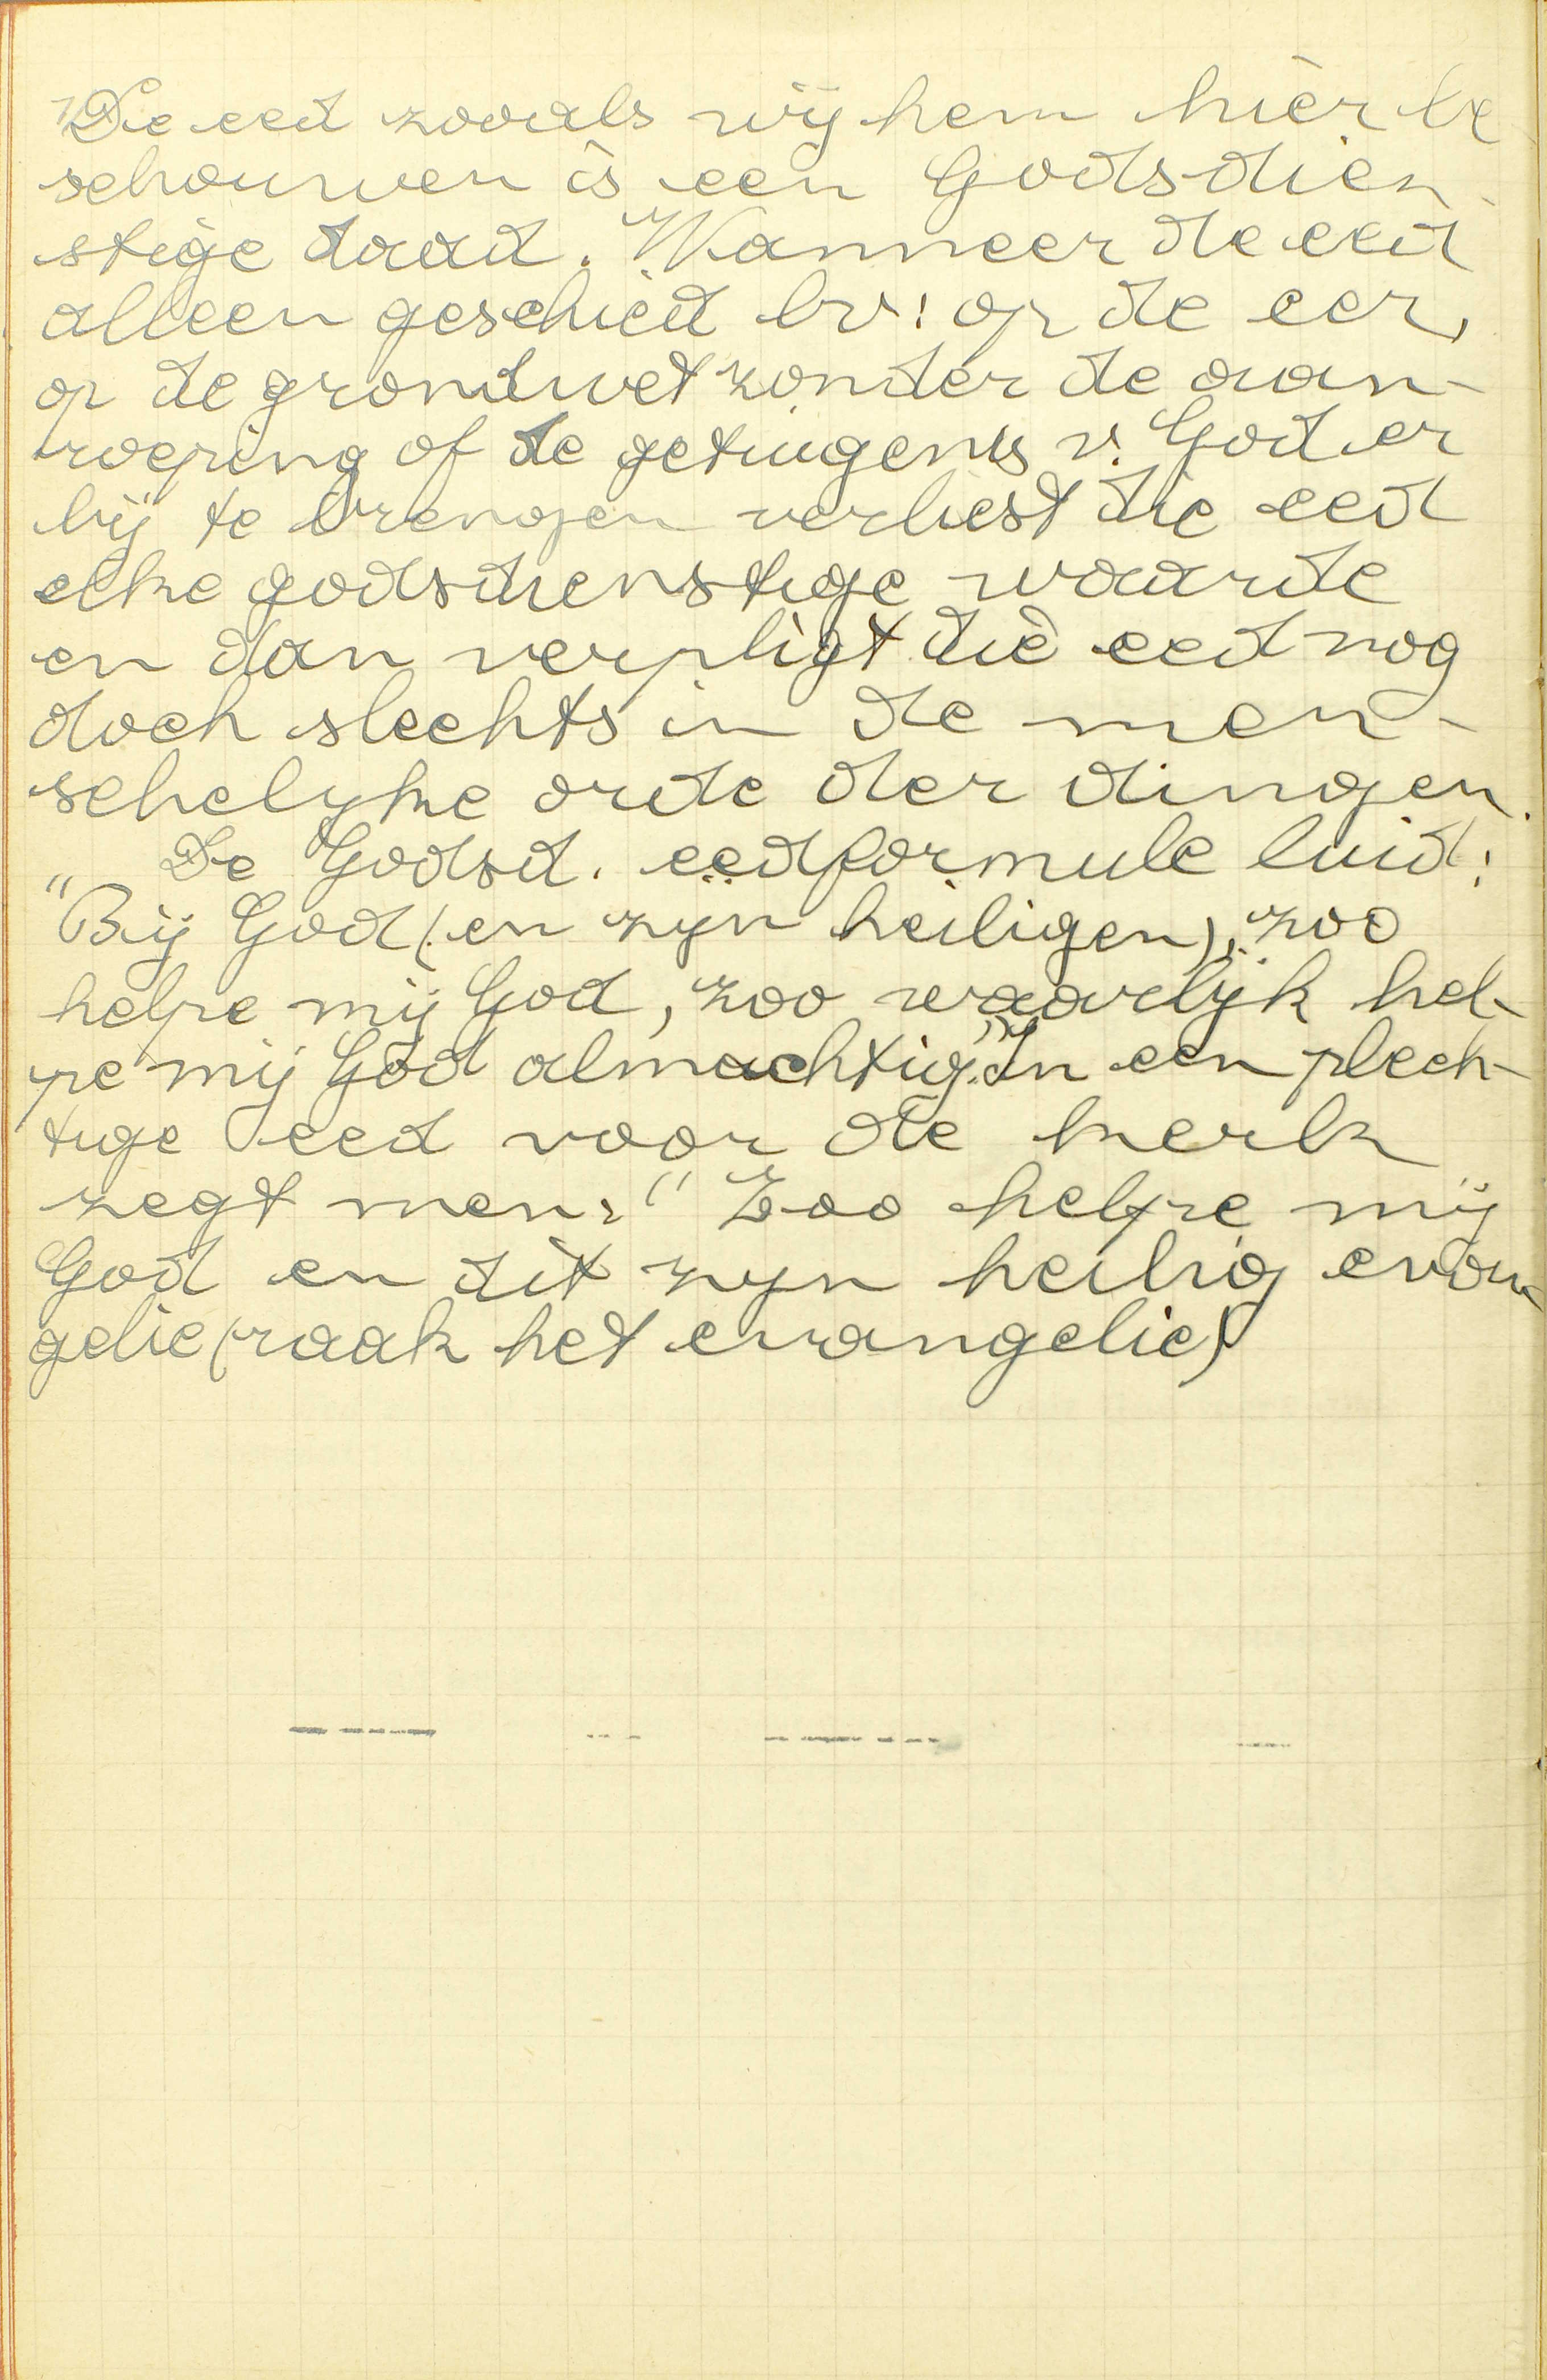 Die eed zooals wij hem hier be
schouwen is een Godsdien-
stige daad. Wanneer de eed
alleen geschied bv: op de eer,
op de grondwet zonder de aan-
roeping of de getuigenis v. God er
bij te brengen verliest die eed
elke godsdienstige waarde
en dan verpligt die eed nog
doch slechts in de men-
schelyke orde der dingen.
De Godsd. eedformule luid:
"Bij God (en zyn heiligen), zoo
helpe mij God, zoo waarlijk hel-
pe mij God almachtig." In een plech-
tige eed voor de kerk
zegt men: "Zoo helpe mij
God en dit zyn heilig evan-
gelie (raak het evangelie)